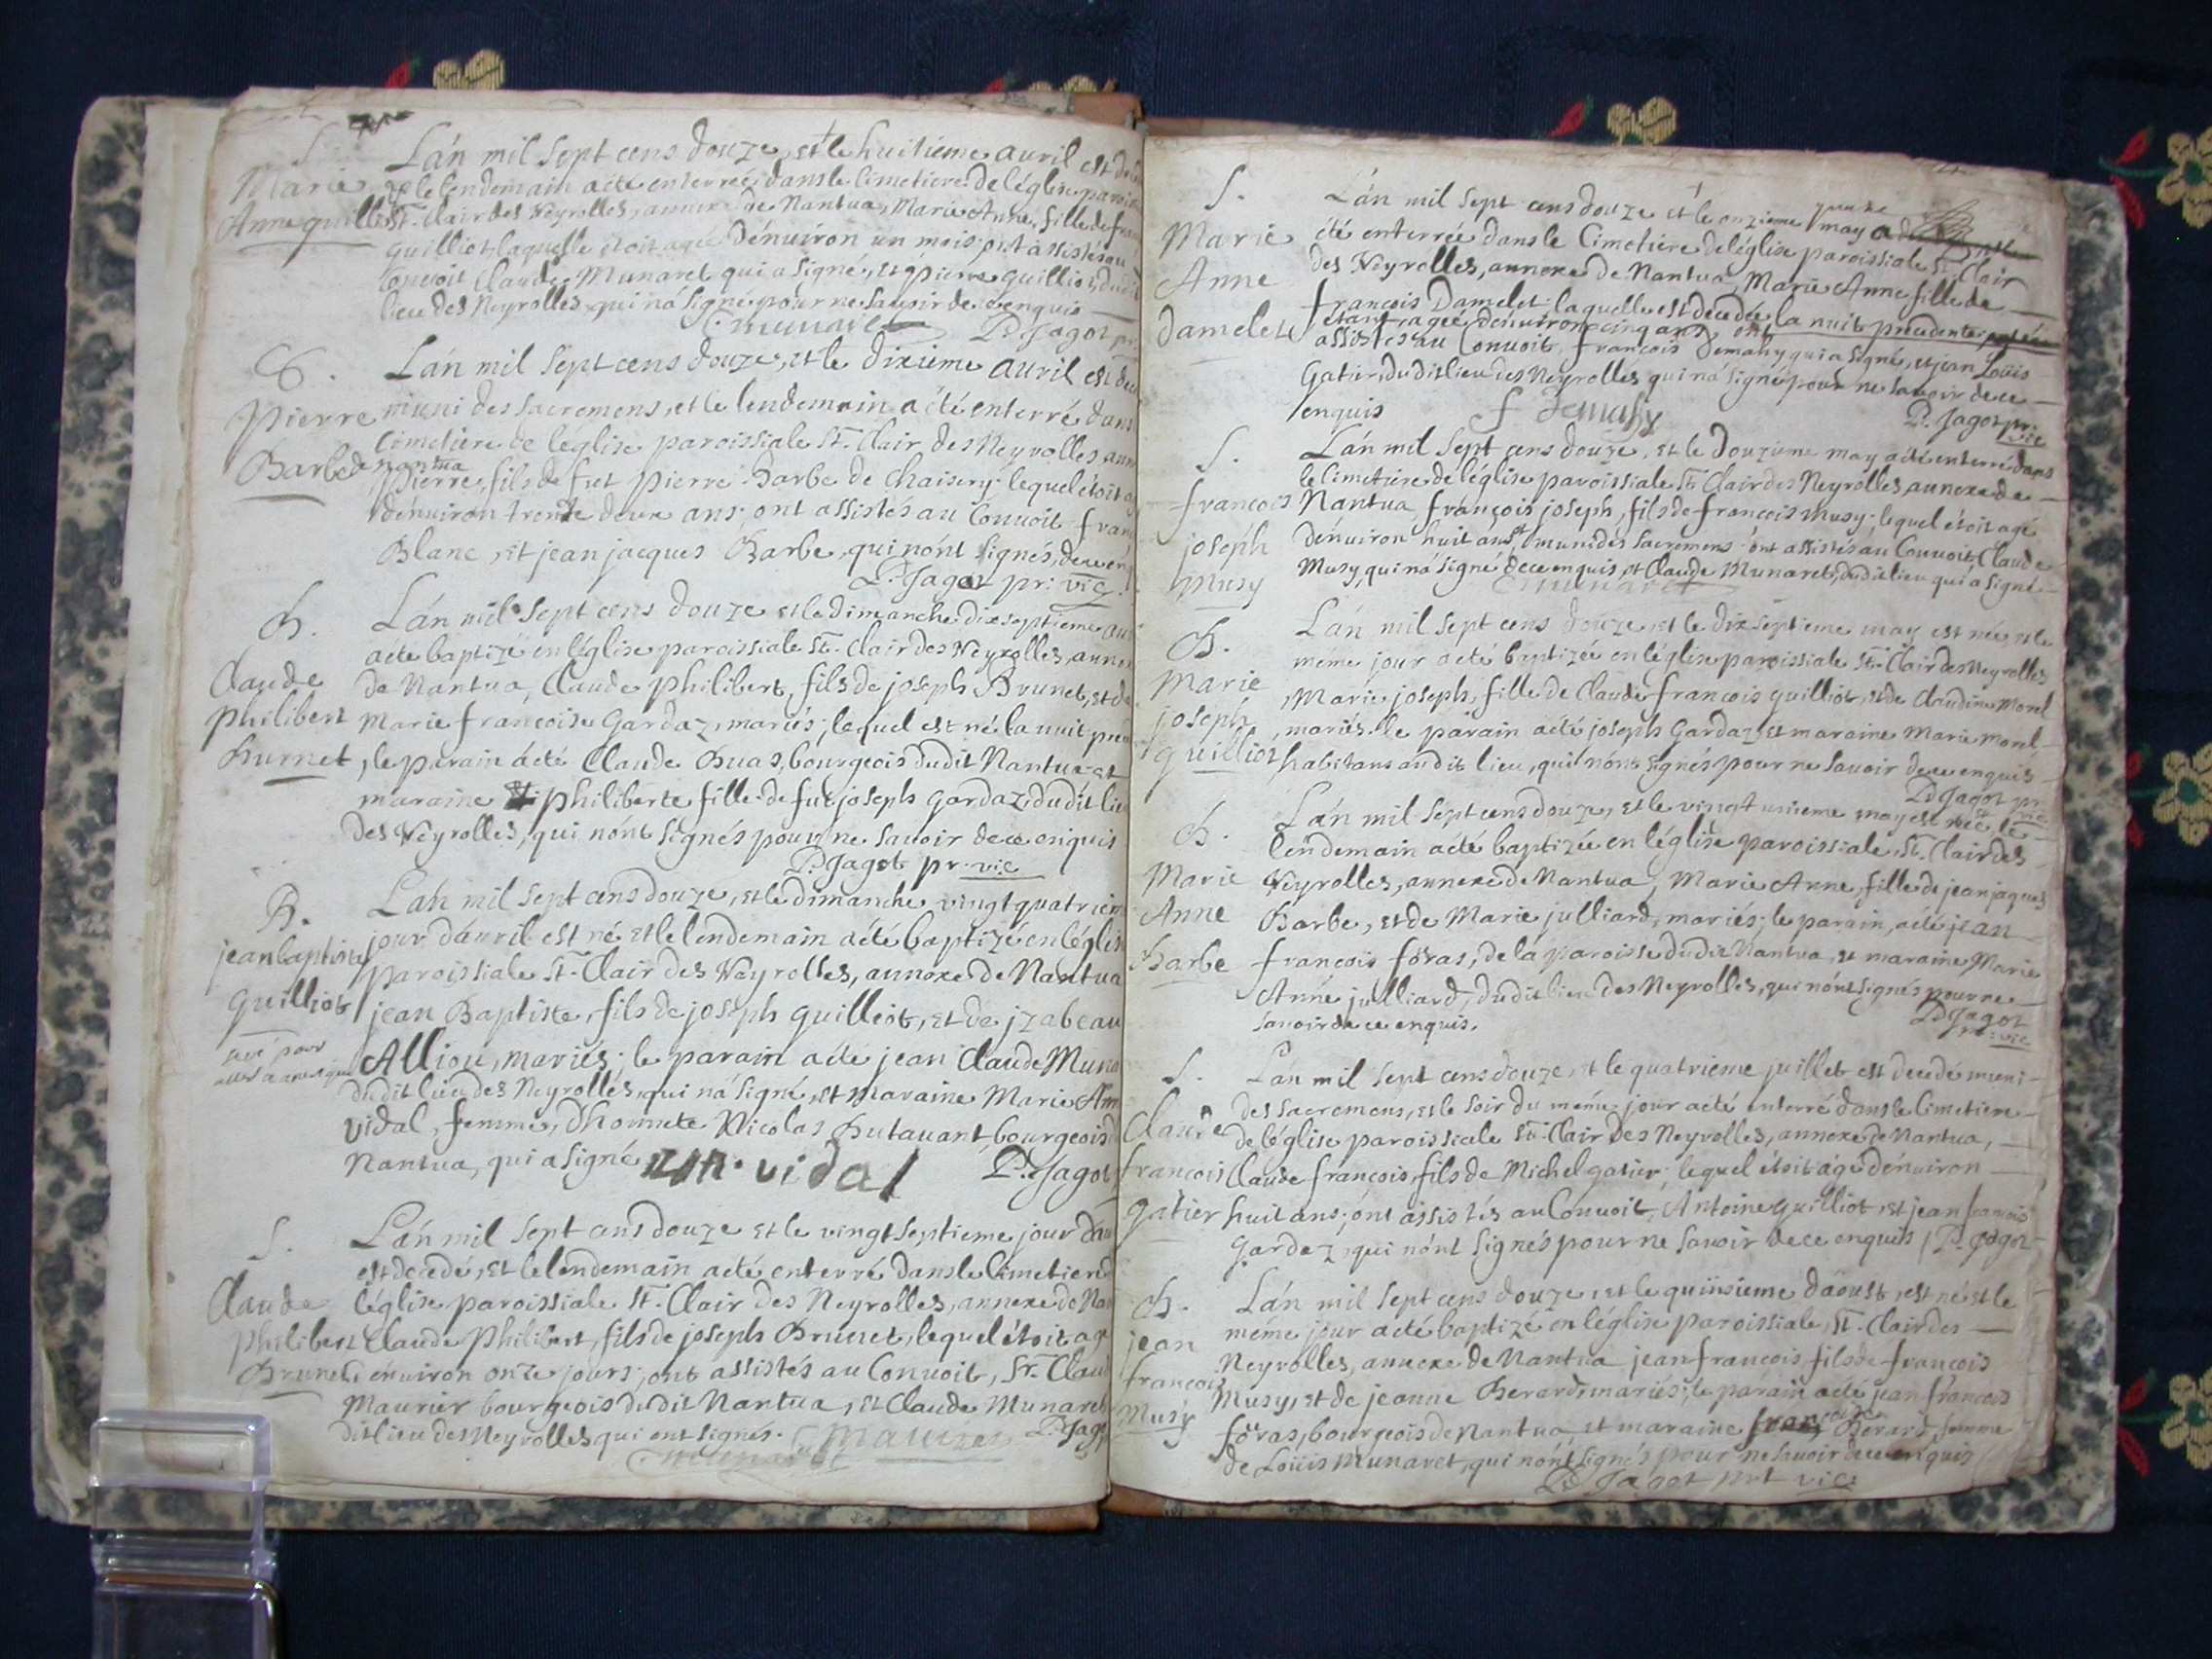 S.
Marie
Anne quilliot
Lán mil sept cens douze, et le huitieme auril est
le lendemain a été enterrée dans le Cimetiere de léglise
St. Clair des Neyrolles, annexe de Nantua, Marie Anne, fille de
quilliot, laquelle étoit agée dénuiron un mois; ont assistés au
Conuoit Claude Munaret qui a signé, et pierre quilliot, dudit
lieu des Neyrolles, qui ná signé pour ne sauoir de ce enquis
C. munaret P. Jagot pr.
S.
Pierre
Barbe
Lán mil sept cens douze, et le dixieme auril est
muni des sacremens, et le lendemain a été enterré dans
Cimetiere de léglise paroissiale St. Clair des Neyrolles
de nantua
pierre, fils de fut pierre Barbe de Chaisery; lequel étoit
dénuiron trente deux ans; ont assistés au Conuoit
Blanc, et jean jacques Barbe, qui nónt signés, de ce
P. Jagot pr: vic.
B.
Claude
philibert
Burnet
Lán mil sept cens douze et le dimanche dix septieme
a été baptizé en léglise paroissiale St. Clair des Neyrolles,
de Nantua, Claude philibert, fils de joseph Brunet, et de
Marie françoise Gardaz, mariés; lequel est né la nuit
, le parain á été Claude Buas, bourgeois dudit Nantua et
maraine philiberte fille de fut joseph gardaz, dudit
des Neyrolles, qui nónt signés pour ne sauoir de ce enquis
P. Jagot pr. vic
B.
jean baptiste
quilliot
Lán mil sept cens douze, et le dimanche vingt quatrieme
jour dáuril est né et le lendemain a été baptizé en léglise
paroissiale St. Clair des Neyrolles, annexe de Nantua
jean Baptiste, fils de joseph quilliot, et de jzabeau
Alliou, mariés; le parain a été jean Claude
dudit lieu des Neyrolles, qui ná signé, et maraine Marie
vidal, femme, dhonnete Nicolas Butauant bourgeois
Nantua, qui a signé vidal P. Jagot
S.
Claude
philibert
Brunet
Lán mil sept cens douze et le vingt septieme jour
est decedé, et le lendemain a été enterré dans le Cimetiere
léglise paroissiale St. Clair des Neyrolles, annexe de
Claude Philibert, fils de joseph Brunet, lequel étoit agé
dénuiron onze jours; ont assistés au Conuoit, Sr. Claude
Maurier bourgeois dudit Nantua, et Claude Munaret
dit lieu des Neyrolles qui ont signés. Maurier P. Jagot
C. munaret
S.
Marie
Anne
Damelet
Lán mil sept cens douze et le onzieme may a
été enterrée dans le Cimetiere de léglise paroissiale St. Clair
des Neyrolles, annexe de Nantua, Marie Anne fille de
françois Damelet laquelle est decedée la nuit precedente
étant agée dénuiron cinq ans, ont
assistés au Conuoit, françois Demahy qui a signé, et jean Loüis
Gatier, dudit lieu des Neyrolles qui ná signé pour ne sauoir de ce
enquis f Demahy P. Jagot pr: vic
S.
francois
joseph
Musy
Lán mil sept cens douze, et le douzieme may a été enterré dans
le Cimetiere de léglise paroissiale St. Clair des Neyrolles, annexe de
Nantua, françois joseph, fils de francois musy; lequel étoit agé
dénuiron huit ans, et muni des sacremens; ont assistés au Conuoit, Claude
Musy, qui ná signé de ce enquis, et Claude Munaret, dudit lieu qui a signé
C munaret
B.
Marie
joseph
quilliot
Lán mil sept cens douze, et le dix septieme may est née, et le
méme jour a été baptizée en léglise paroissiale St. Clair des Neyrolles
, Marie joseph, fille de Claude françois quilliot, et de Claudine Morel
, mariés. le parain a été joseph Gardaz et maraine Marie morel
habitans audit lieu, qui nónt signés pour ne sauoir de ce enquis
P. Jagot pr: vic
B.
Marie
Anne
Barbe
Lán mil sept cens douze, et le vingt unieme may est née, et le
lendemain a été baptizée en léglise paroissiale, St. Clair des
Neyrolles, annexe de Nantua, Marie Anne, fille de jean jaques
Barbe, et de Marie julliard, mariés; le parain, a été jean
françois föras, de la paroisse dudit Nantua, et maraine Marie
Anne julliard, dudit lieu des Neyrolles, qui nónt signés pour ne
sauoir de ce enquis. P. Jagot
pr: vic
S.
Claude
françois
gatier
Lán mil sept cens douze, et le quatrieme juillet est decedé muni
des sacremens, et le soir du méme jour a été enterré dans le Cimetiere
de léglise paroissiale St. Clair des Neyrolles, annexe de Nantua,
Claude françois, fils de Michel gatier; lequel étoit ágé dénuiron
huit ans; ónt assistés au Conuoit, Antoine quilliot, et jean francois
Gardaz, qui nónt signés pour ne sauoir de ce enquis, P. Jagot
B.
jean
françois
Musy
Lán mil sept cens douze, et le quinsieme dáoust, est né et le
méme jour a été baptizé en léglise paroissiale, St. Clair des
Neyrolles, annexe de Nantua jean françois fils de françois
Musy, et de jeanne Berard, mariés; le parain a été jean francois
föras, bourgeois de Nantua, et maraine françoise Berard femme
de Loüis Munaret, qui nónt signés pour ne sauoir de ce enquis
P. Jagot prt vic: